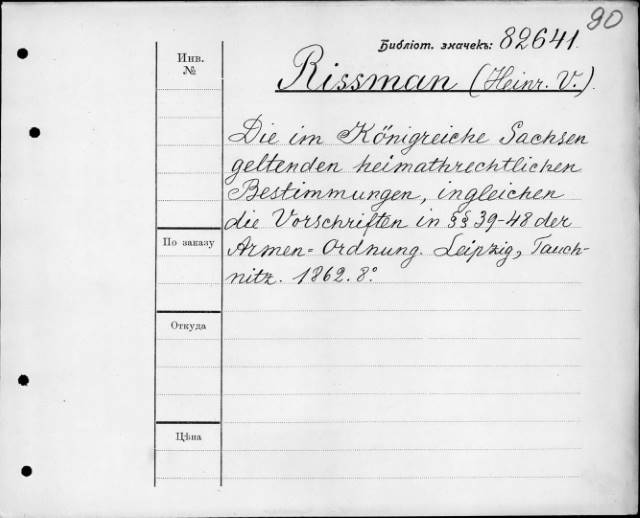 90
Библіот. значекъ: 82641.
Инв.
№
Rissman (Heinr. V.).
Die im Königreiche Sachsen
geltenden heimathrechtlichen
Bestimmungen, ingleichen
die Vorschriften in §§ 39-48 der
По заказу
Armen=Ordnung. Leipzig, Tauch-
nitz. 1862. 8.°
Откуда
Цѣна